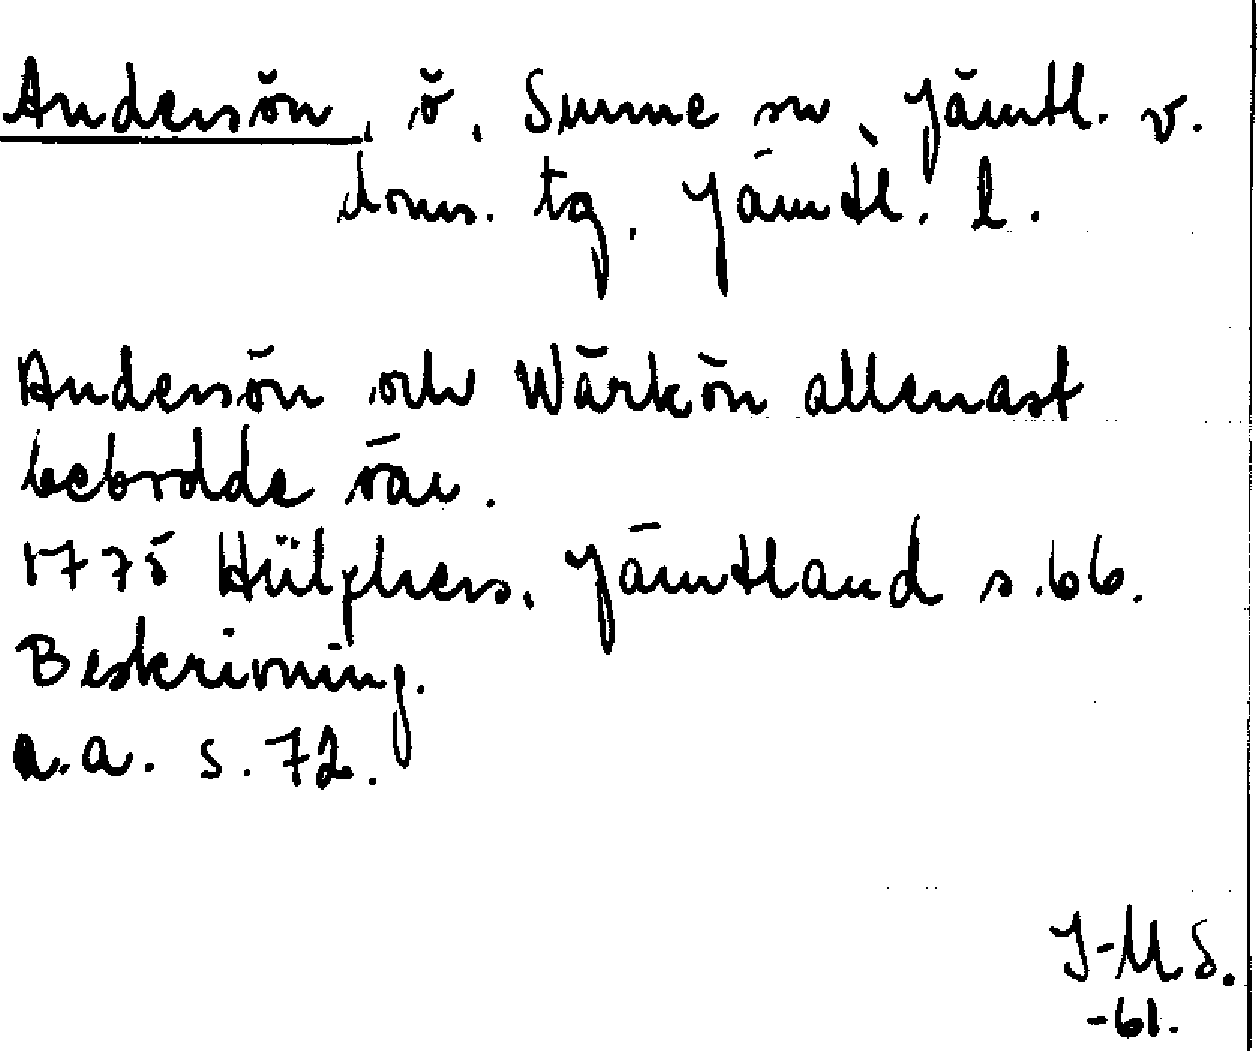 Andersön, ö, Sunne sn, Jämtl. v.
doms. tg. Jämtl. l.
Andersön och Wärkön allenast
bebodde äro.
1775 Hülphers, Jämtland s. 66.
Beskrivning.
a.a. s. 72.
I-M S.
-61.